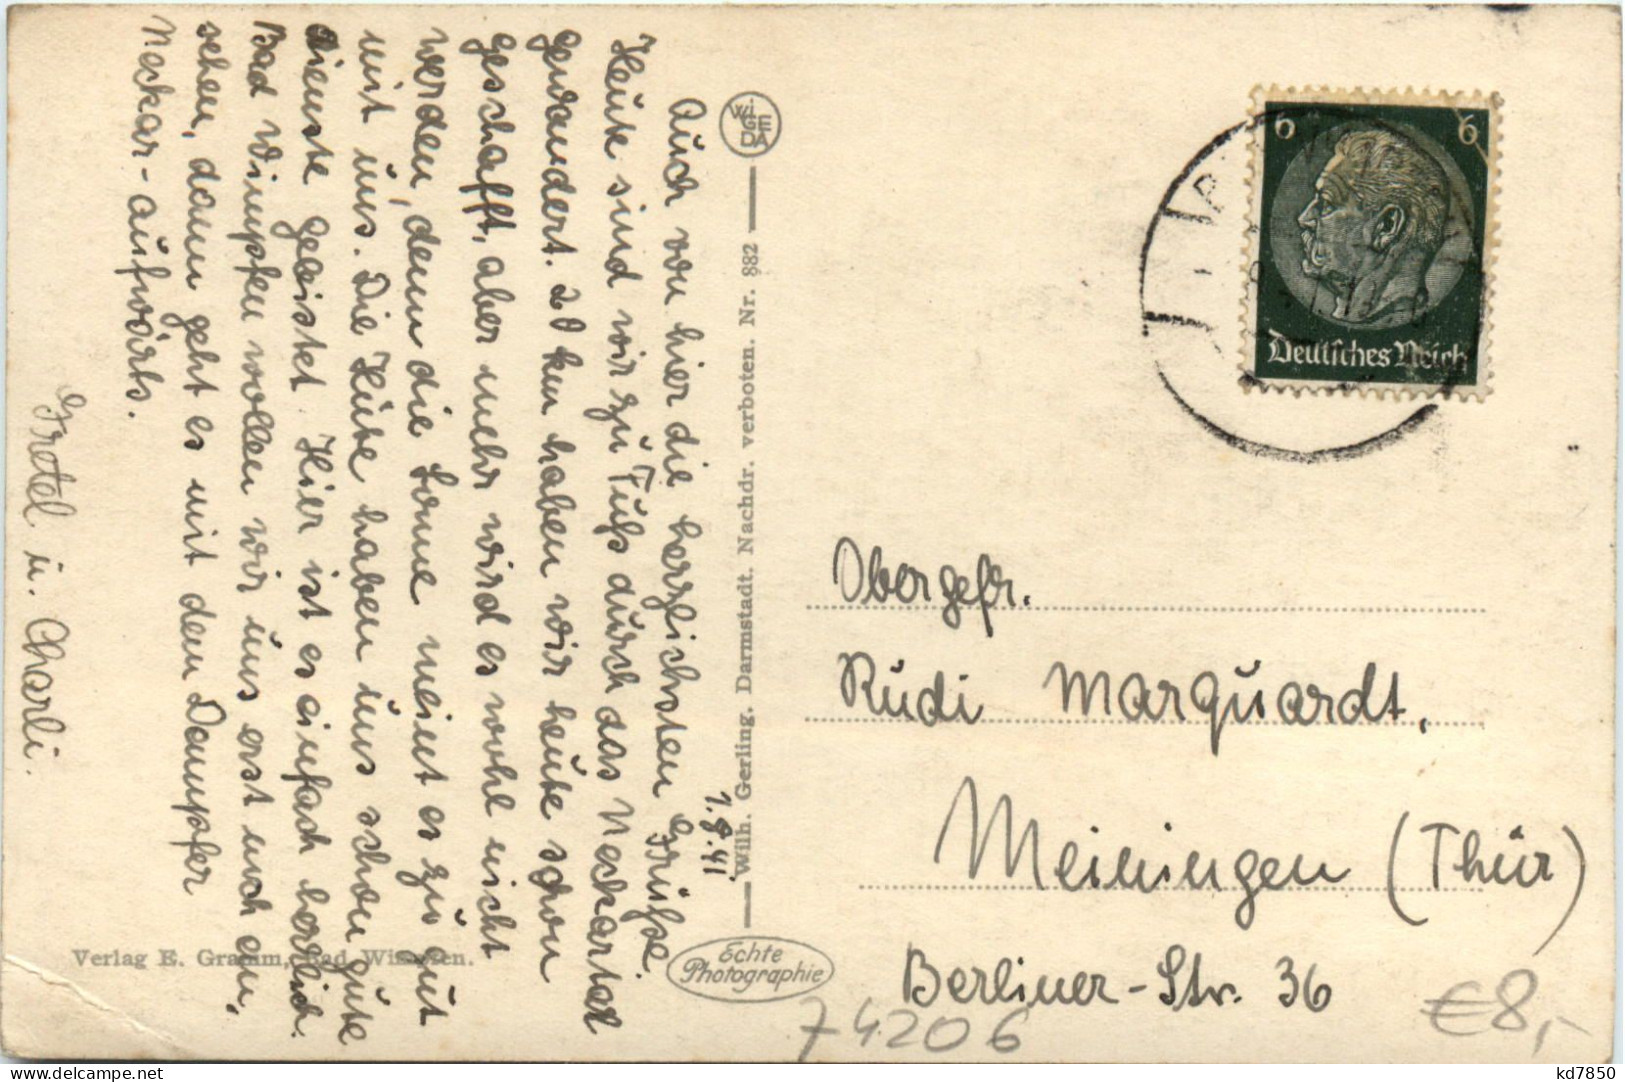 1.8.41
Auch von hier die herzlichsten Grüße.
Heute sind wir zu Fuß durch das Neckartal
gewandert. 20 km haben wir heute schon
geschafft, aber mehr wird es wohl nicht
werden, denn die Sonne meint es zu gut
mit uns. Die Hüte haben uns schon gute
Dienste geleistet. Hier ist es einfach herrlich.
Bad Wimpfen wollen wir uns erst noch an-
sehen, dann geht es mit dem Dampfer
Neckar-aufwärts.
Gretel u. Charli.
Wilh. Gerling. Darmstadt. Nachdr. verboten. Nr. 882
Echte
Photographie
Verlag E. Gramm, Bad Wimpfen.
6 6
Deutsches Reich
Obergefr.
Rudi Marquardt,
Meiningen (Thür)
Berliner-Str. 36
74206
€8,-
kd7850